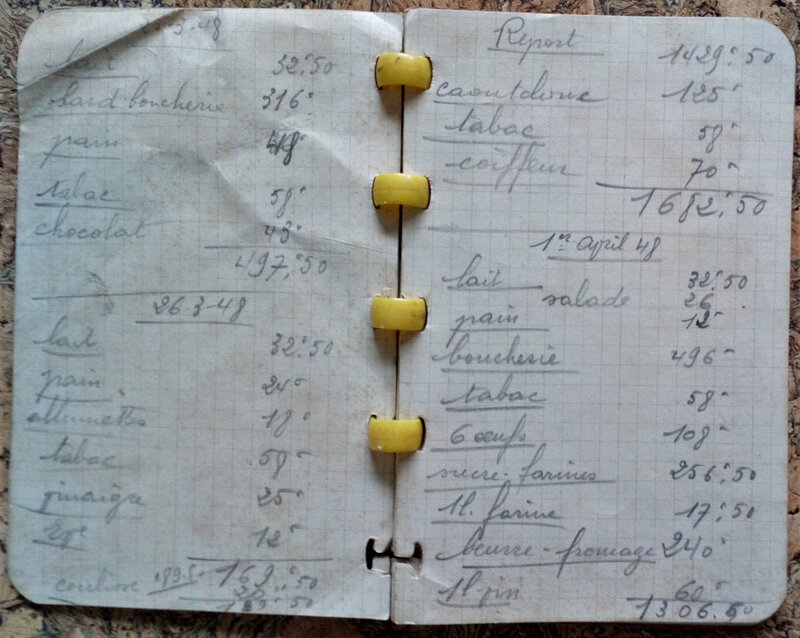 3-48
lait 32.50
lard boucherie 316
pain 48
tabac 58
chocolat 43
497.50
26-3-48
lait 32.50
pain 24
allumettes 18
tabac 58
vinaigre 25
12
169.50
Report 1429.50
caoutchouc 125
tabac 58
coiffeur 70
1682.50
1er april 48
lait 32.50
salade 26
pain 12
boucherie 496
tabac 58
6 œufs 108
sucre-farines 256.50
1l. farine 17.50
beurre-fromage 240
60
1306.50